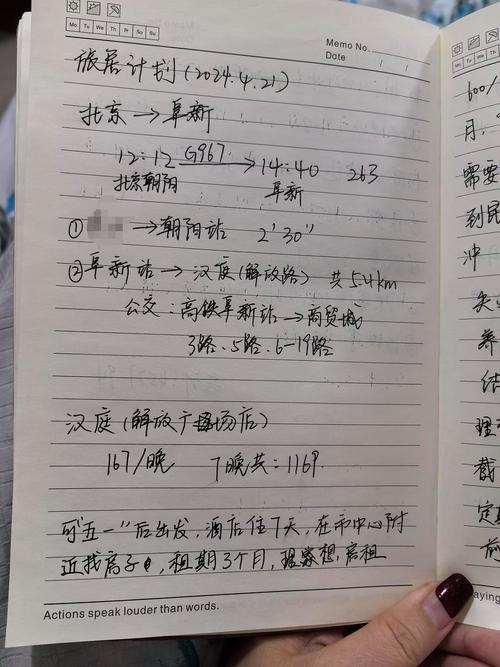 Mo Tu We Th Fr Sa Su
Memo No.
Date / /
旅居计划(2024.4.21)
北京→阜新
12:12 G967 → 14:40 263
北京朝阳 阜新
① →朝阳站 2'30"
②阜新站→汉庭(解放路) 共5.4km
公交:高铁阜新站→商贸城
3路、5路、6-19路
汉庭(解放广场店)
167/晚 7晚共:1169
可"五一"后出发,酒店住7天,在市中心附
近找房子,租期3个月,理想,房租
Actions speak louder than words.
600/
月,
需要
到民
冲
失
养
结
理
截
定
前
aying